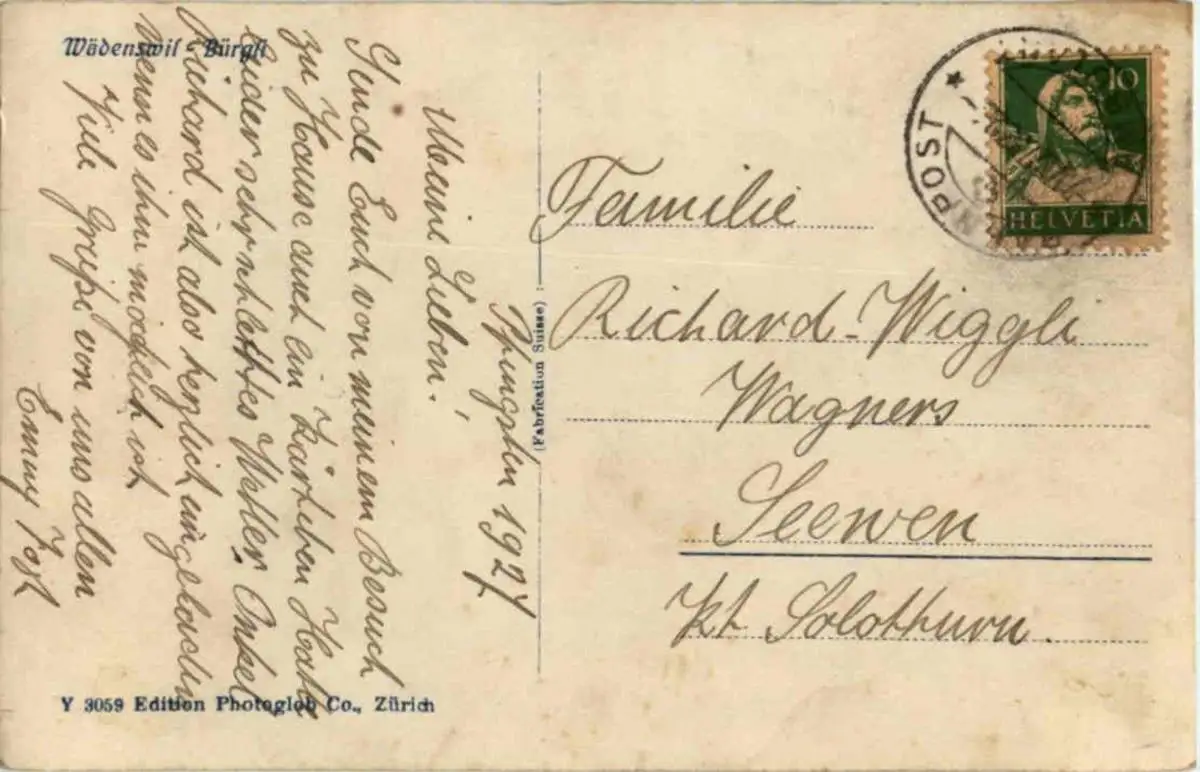 Wädenswil - Bürgli
Pfingsten 1927
Meine Lieben!
Sende Euch von meinem Besuch
zu Hause auch ein Kärtchen. Habe
leider sehr schlechtes Wetter. Onkel
Richard ist also herzlich eingeladen
wenn es ihm möglich ist
Viele Grüße von uns allen
Emmy
(Fabrication Suisse)
Y 3059 Edition Photoglob Co., Zürich
10
HELVETIA
POST
Familie
Richard-Wiggli
Wagners
Seewen
Kt. Solothurn.